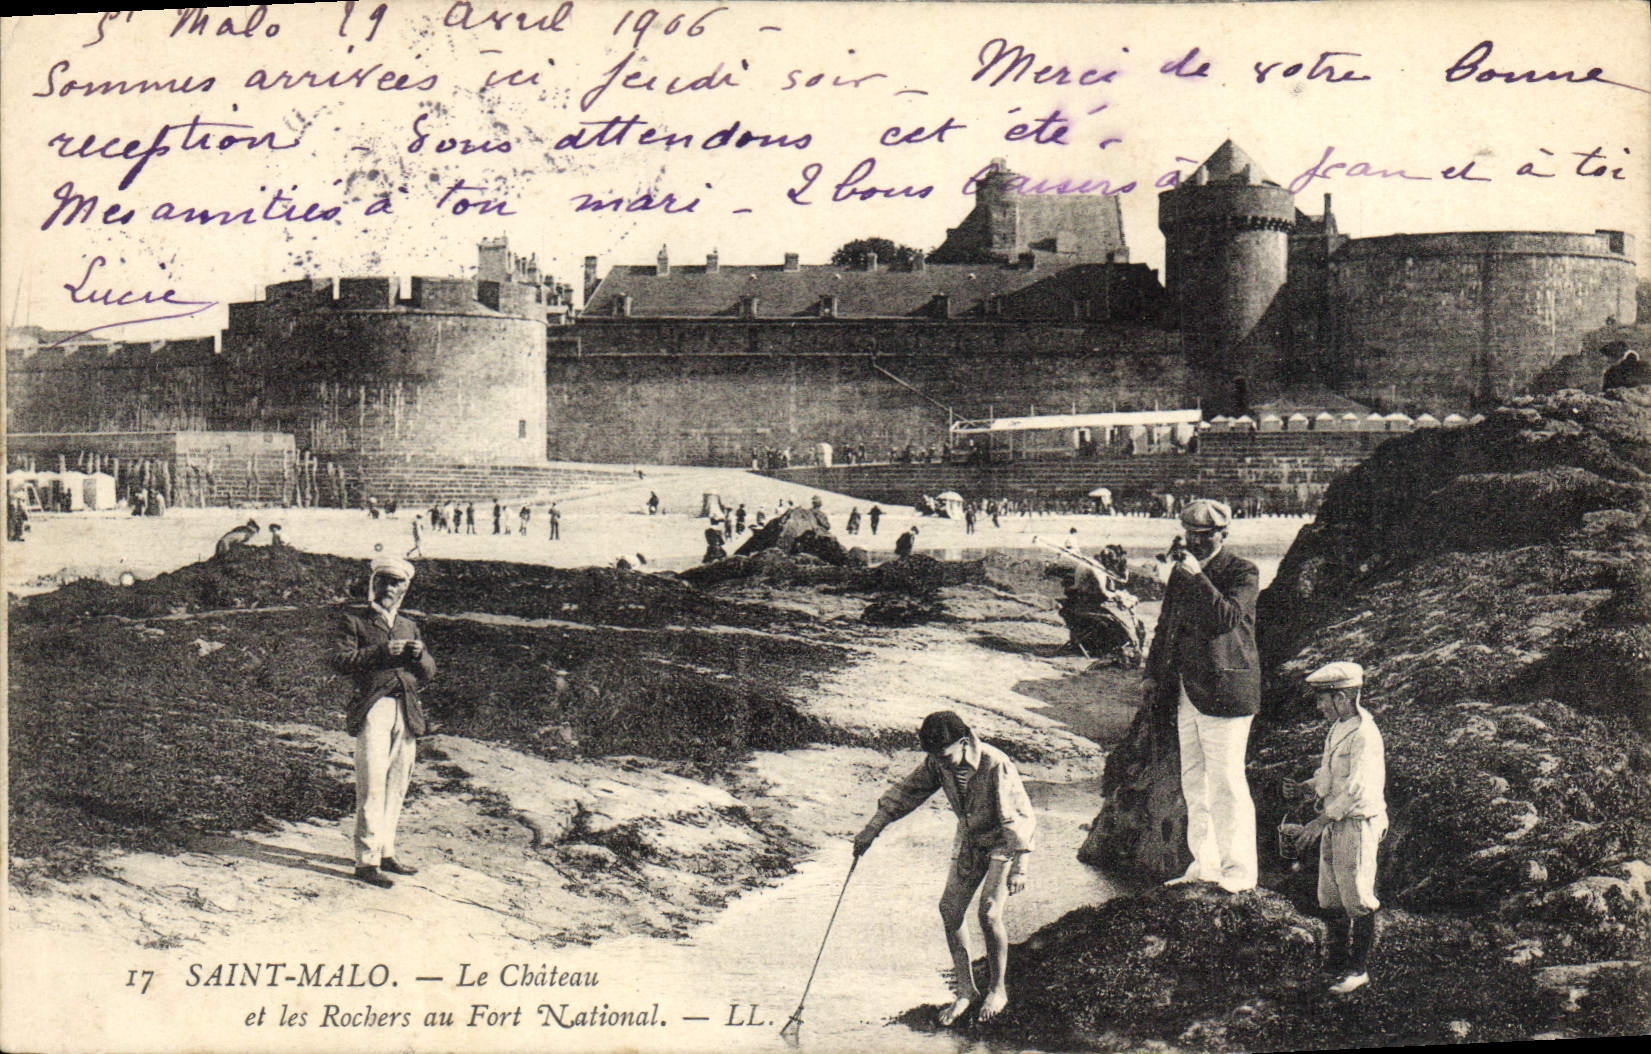 St Malo 29 Avril 1906 -
Sommes arrivées ici jeudi soir - Merci de votre bonne
reception - Vous attendons cet été.
Mes amitiés à ton mari - 2 bons baisers à Jean et à toi
Lucie
17 SAINT-MALO. — Le Château
et les Rochers au Fort National. — LL.